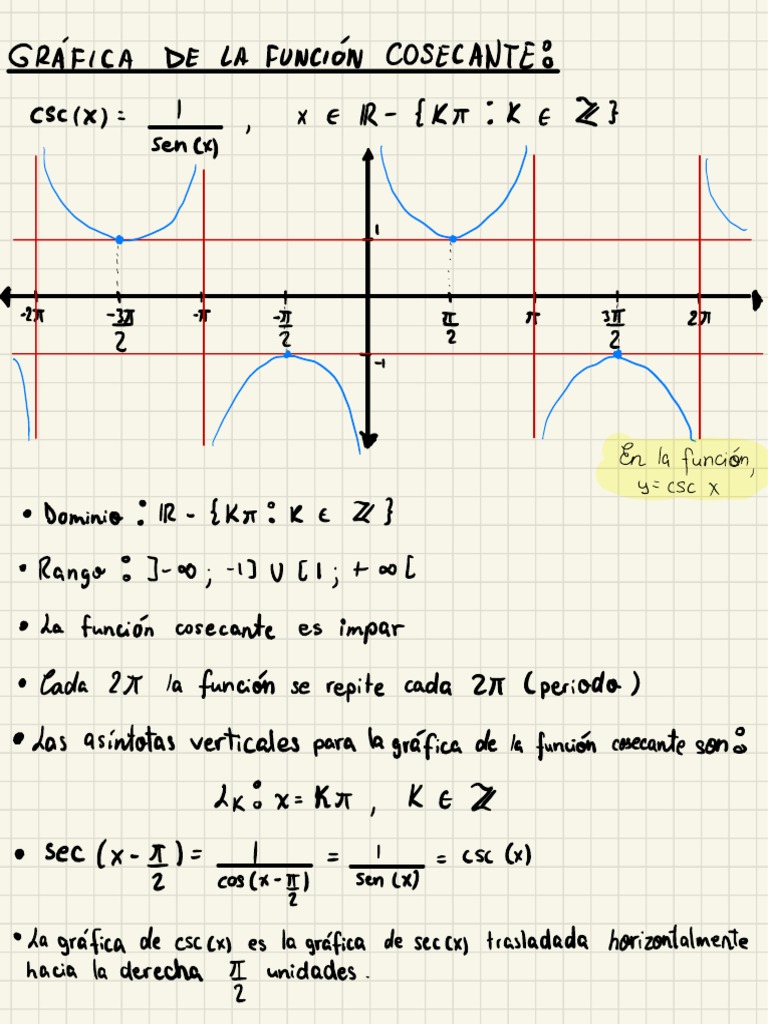 GRÁFICA DE LA FUNCIÓN COSECANTE:
csc(x) = 1/sen(x) , x ∈ ℝ - {Kπ : K ∈ ℤ}
1
-2π -3π/2 -π -π/2 π/2 π 3π/2 2π
-1
En la función,
y = csc x
• Dominio : ℝ - {Kπ : K ∈ ℤ}
• Rango : ]-∞ ; -1] ∪ [1 ; +∞[
• La función cosecante es impar
• Cada 2π la función se repite cada 2π (periodo)
• Las asíntotas verticales para la gráfica de la función cosecante son:
L_K : x = Kπ , K ∈ ℤ
• sec (x - π/2) = 1/cos(x - π/2) = 1/sen(x) = csc (x)
• La gráfica de csc(x) es la gráfica de sec(x) trasladada horizontalmente
hacia la derecha π/2 unidades.